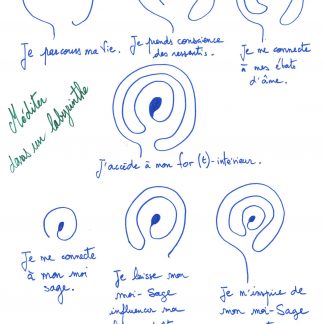 Je parcours ma vie.
Je prends conscience
des ressentis.
Je me connecte
à mes états
d'âme.
Méditer
dans un labyrinthe
J'accède à mon for (t)-intérieur.
Je me connecte
à mon moi
sage.
Je laisse mon
moi-Sage
influencer ma
Je m'inspire de
mon moi-Sage